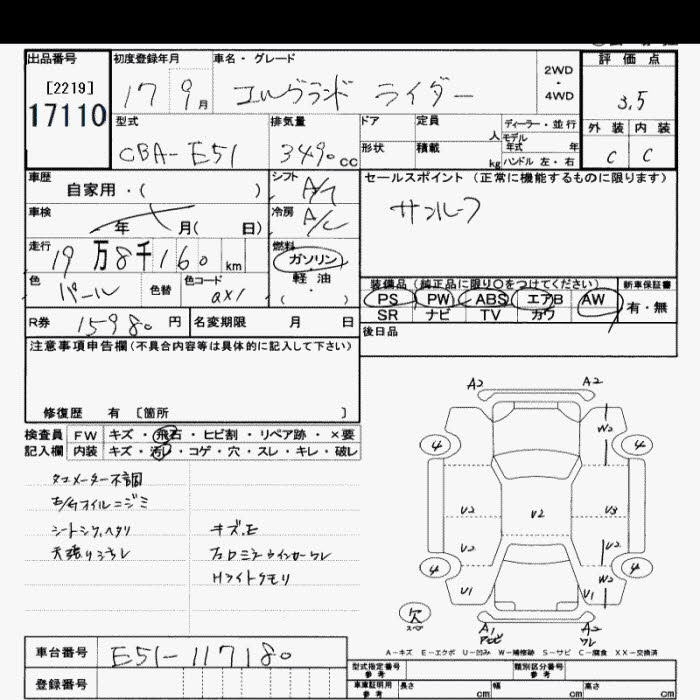 出品番号
[2219]
17110
初度登録年月
17 9月
車名・グレード
エルグランド ライダー
2WD
・
4WD
評価点
3.5
外装 内装
C C
型式
CBA-E51
排気量
3490cc
ドア
形状
定員
人
積載
kg
ディーラー・並行
モデル
年式 年
ハンドル 左・右
車歴
自家用・( )
シフト
A/T
セールスポイント(正常に機能するものに限ります)
サンルーフ
車検
年 月( 日)
冷房
A/C
走行
19万8千160km
燃料
ガソリン
軽油
( ・ )
色
パール
色替
色コード
QX1
装備品(純正品に限り○をつけてください)
PS PW ABS エアB AW
SR ナビ TV カワ
新車保証書
有・無
R券 15980円
名変期限 月 日
後日品
注意事項申告欄(不具合内容等は具体的に記入して下さい)
修復歴 有 [箇所 ]
検査員
記入欄
FW キズ・飛石・ヒビ割・リペア跡・×要
内装 キズ・汚レ・コゲ・穴・スレ・キレ・破レ
タコメーター不調
E/Gオイルニジミ
シートシワ、ヘタリ
天張りウチレ
キズ.E
フェロミラーウインカーワレ
Hライトクモリ
A2 A2
W2
4 4
U2 U2 U3
U2 U2
4 4
U1 U1 W2
欠
スペア
A1 A2
ワレ
A-キズ E-エクボ U-凹み W-補修跡 S-サビ C-腐食 XX-交換済
車台番号 E51-117180
登録番号
型式指定番号
参考
類別区分番号
参考
車庫証明用
参考
長さ cm 幅 cm 高さ cm